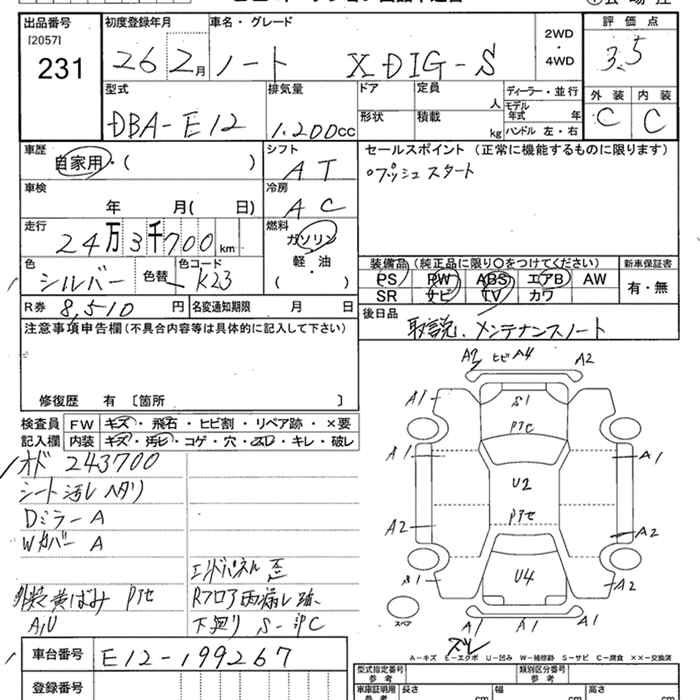 出品番号 初度登録年月 車名・グレード 評価点
[2057]
231 26 2月 ノート X DIG-S 2WD・4WD 3.5
型式 排気量 ドア 定員 人 ディーラー・並行 外装 内装
DBA-E12 1.200cc 形状 積載 kg モデル年式 年 ハンドル 左・右 C C
車歴 シフト セールスポイント (正常に機能するものに限ります)
自家用・( ) AT プッシュスタート
車検 冷房
年 月( 日) AC
走行 燃料
24万3千700km ガソリン・軽・油
色 色コード 装備品 (純正品に限り○をつけてください) 新車保証書
シルバー 色替 K23 ( ) PS PW ABS エアB AW 有・無
SR ナビ TV カワ
R券 8,510円 名変通知期限 月 日 後日品
取説、メンテナンスノート
注意事項申告欄(不具合内容等は具体的に記入して下さい)
修復歴 有 〔箇所 〕
検査員 FW キズ・飛石・ヒビ割・リペア跡・×要
記入欄 内装 キズ・汚れ・コゲ・穴・スレ・キレ・破レ
オド 243700
シート汚レ ヘタリ
Dミラー A
Wカバー A
エンドパネル歪
外装黄ばみ Pアセ Rフロア雨漏レ跡
A/U 下廻り S-中C
A2 ヒビA4 A2
A1 S1 A1
Pアセ
A1 A1
U2
A2 Pアセ A2
S1 U4 A2
スペア A1 A1 A1
A-キズ E-エクボ U-凹み W-補修跡 S-サビ C-腐食 XX-交換済
車台番号 E12-199267
登録番号
型式指定番号 参考 類別区分番号 参考
車庫証明用 参考 長さ cm 幅 cm 高さ cm